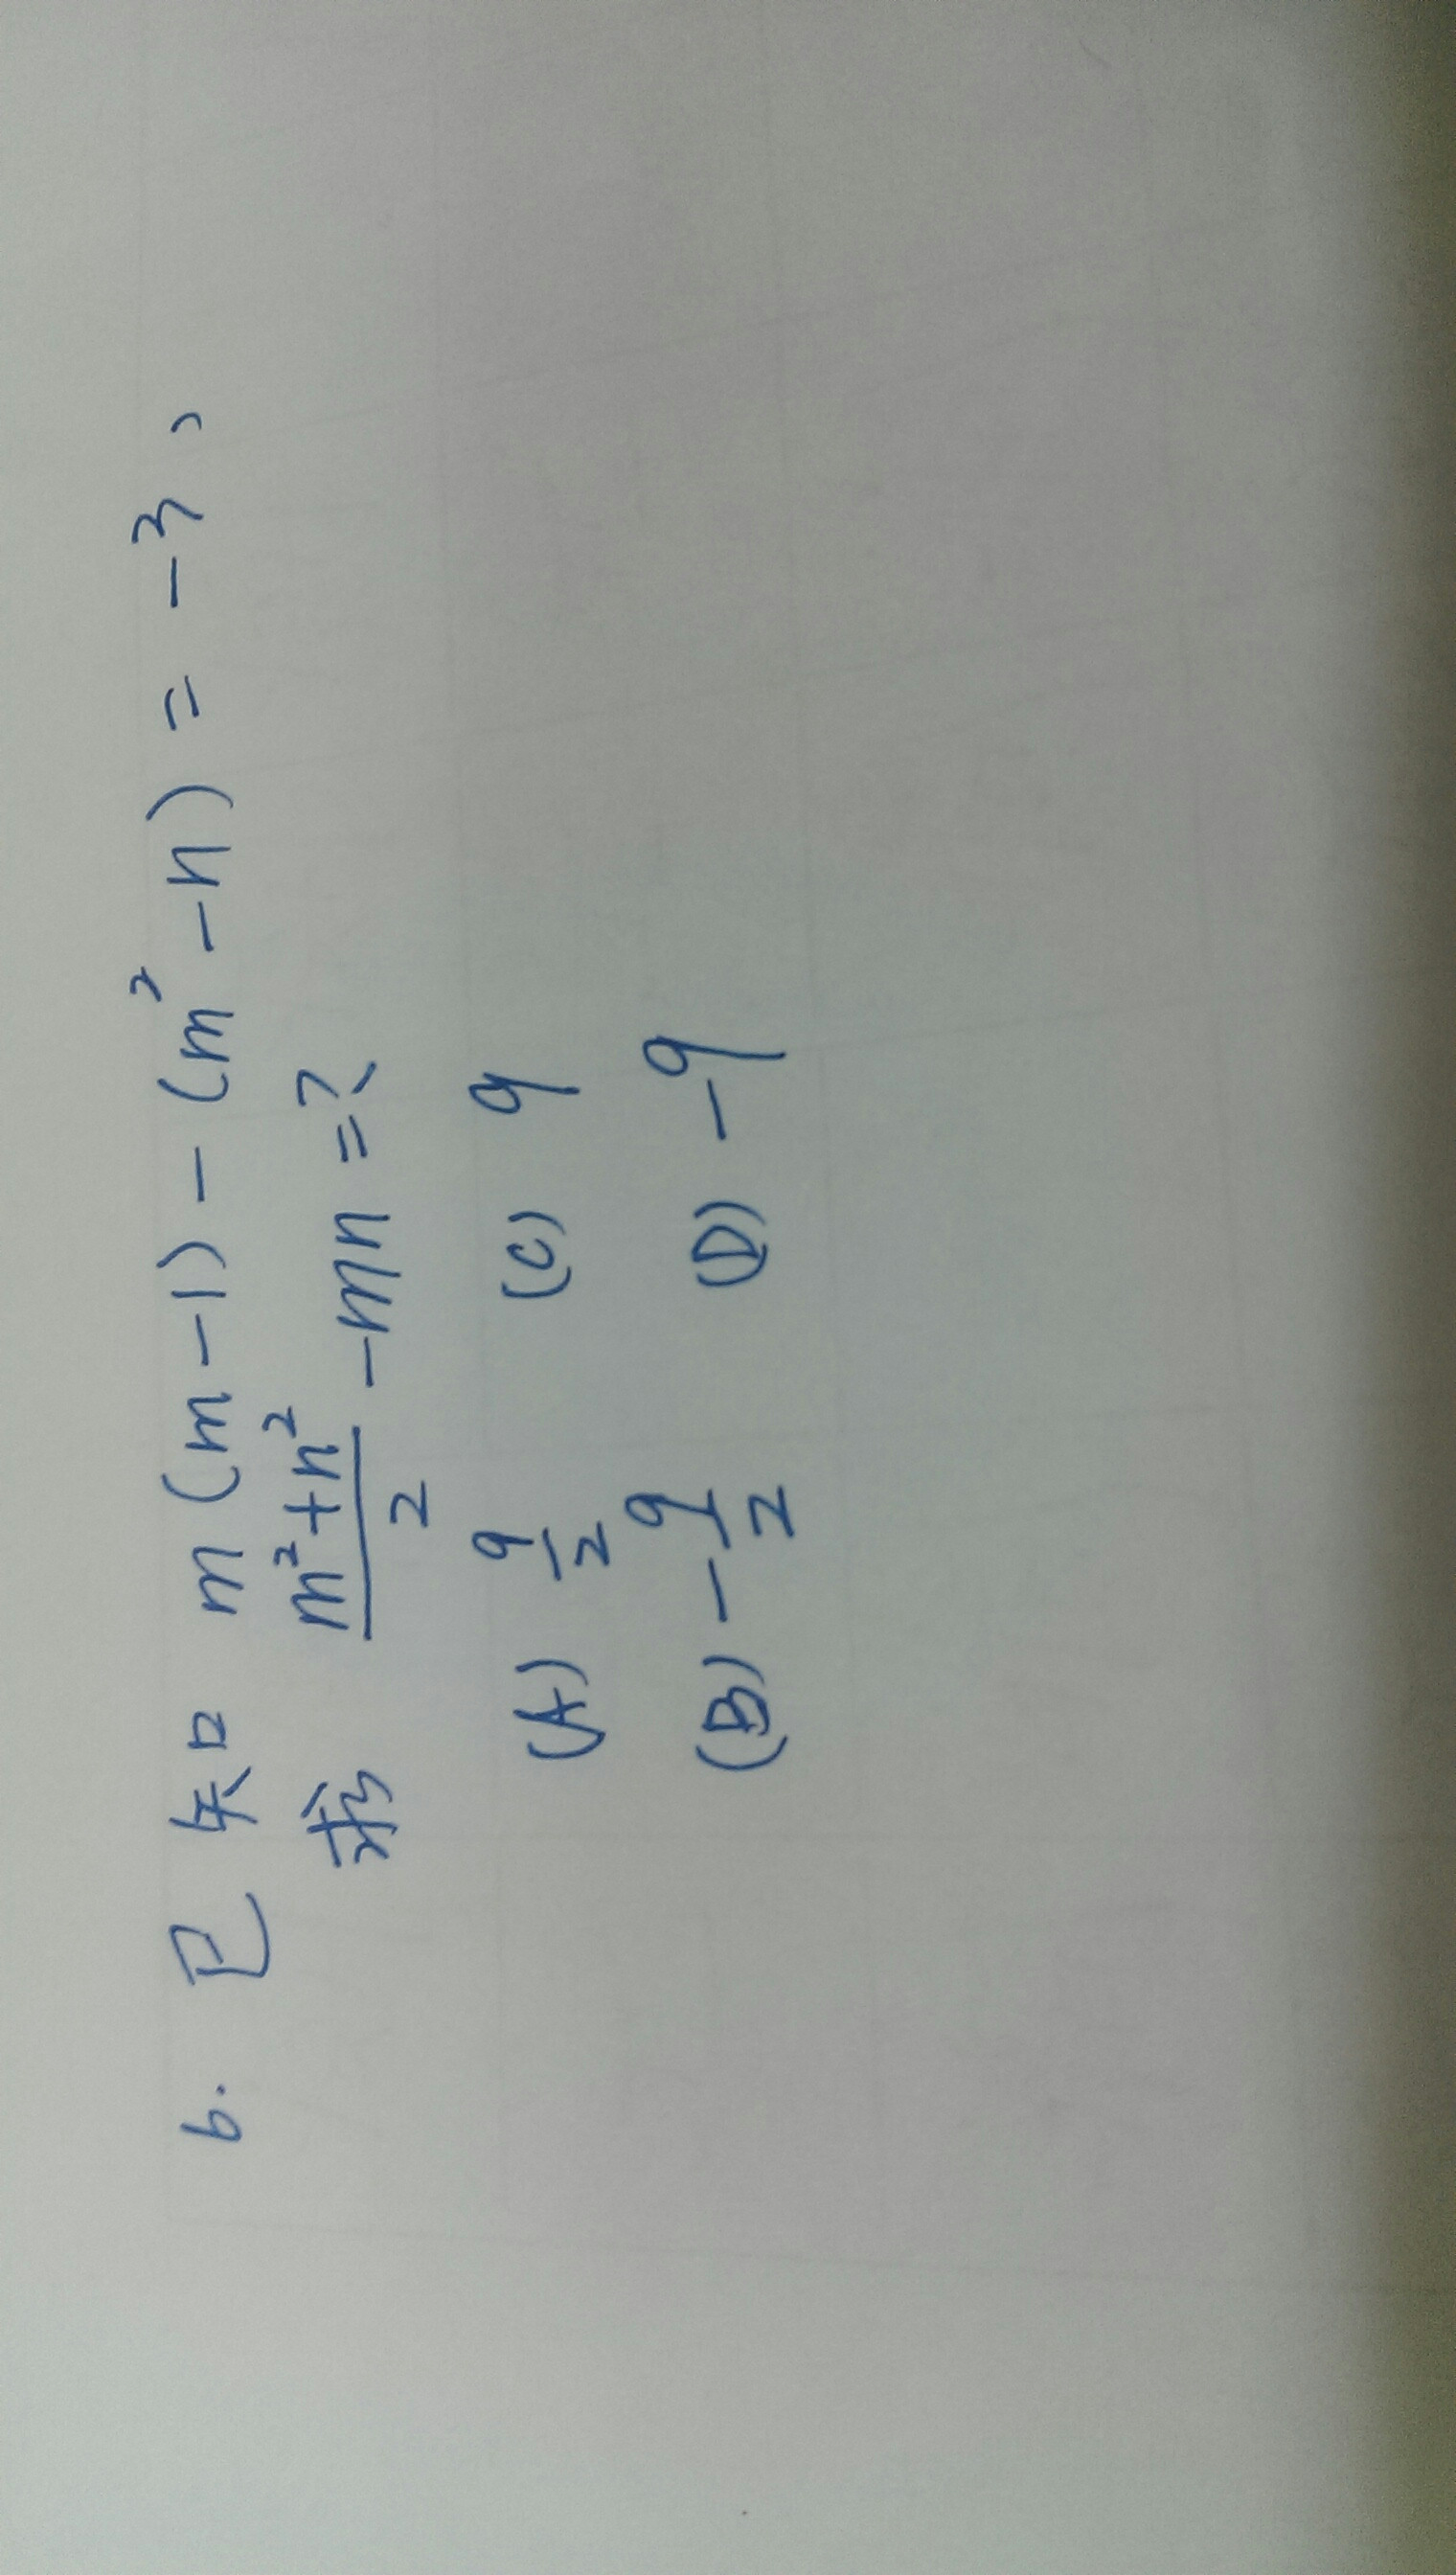 6. 已知 m(m-1)-(m²-n)=-3，
求 (m²+n²)/2 -mn=?
(A) 9/2 (C) 9
(B) -9/2 (D) -9